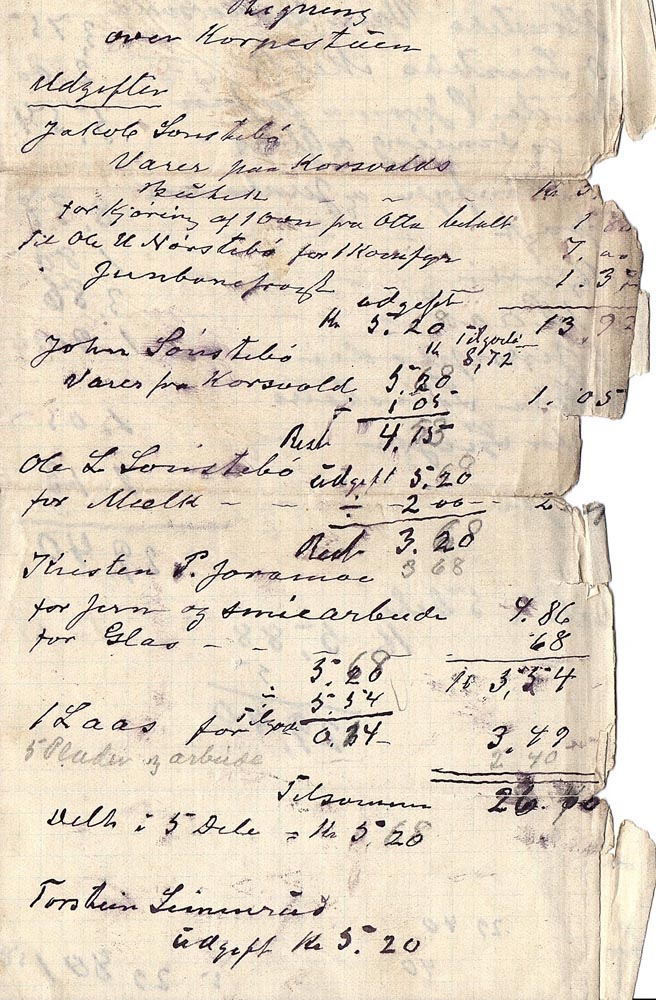 Regning
over Korpestuen
Udgifter
Jakob Sønstebø
Varer paa Korsvolds
Butik Kr 3.
for Kjøring af 1 Ovn fra Otta betalt 1.
Til Ole U Nørstebø for 1 7.00
Jernbanefragt 1.32
udgift
Kr 5.20 Tilgode 13.92
Kr 8,72
John Sønstebø
Varer fra Korsvold 5,20 1.05
÷ 1 05
Rest 4,15
Ole L Sønstebø udgift 5.20
for Mælk - - ÷ 2 00 - 2
Rest 3.20
3 68
Kristen P. Joramoe
for Jern og smiearbeide 4.86
for Glas - - 68
5.20 Kr 5,54
÷ 5.54
1 Laas for Tilgode 0,34 3,49
5 Plader og arbeide 2 40
Tilsammen 26.00
Delt i 5 Dele = Kr 5.20
Torstein
udgift Kr 5.20